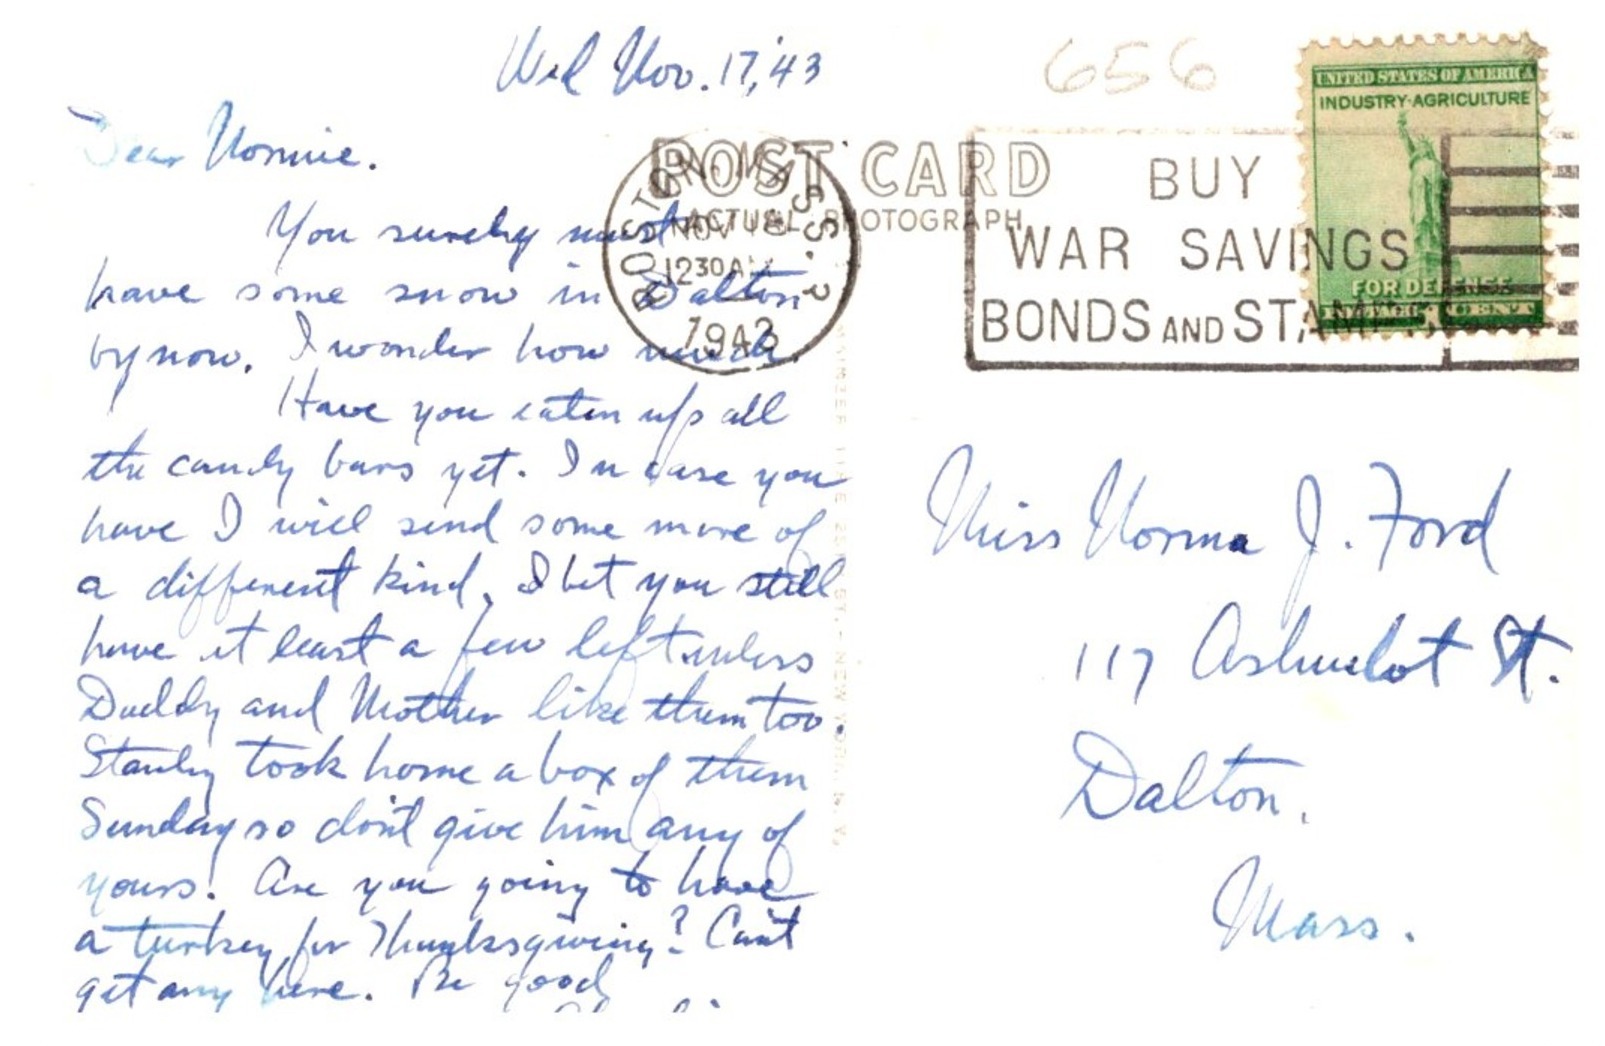 Wed Nov. 17, '43
656
Dear Nornie.
You surely must
have some snow in Dalton
by now. I wonder how much.
Have you eaten up all
the candy bars yet. In case you
have I will send some more of
a different kind. I bet you still
have at least a few left unless
Daddy and Mother like them too.
Stanley took home a box of them
Sunday so don't give him any of
yours! Are you going to have
a turkey for Thanksgiving? Can't
get any here. Be good
POST CARD
ACTUAL PHOTOGRAPH
BOSTON, MASS.
NOV 18
1230 AM
1943
BUY
WAR SAVINGS
BONDS AND STAMPS
UNITED STATES OF AMERICA
INDUSTRY·AGRICULTURE
FOR DEFENSE
POSTAGE 1 CENT
Miss Norma J. Ford
117 Ashuelot St.
Dalton,
Mass.
ST. - NEW YORK, N.Y.